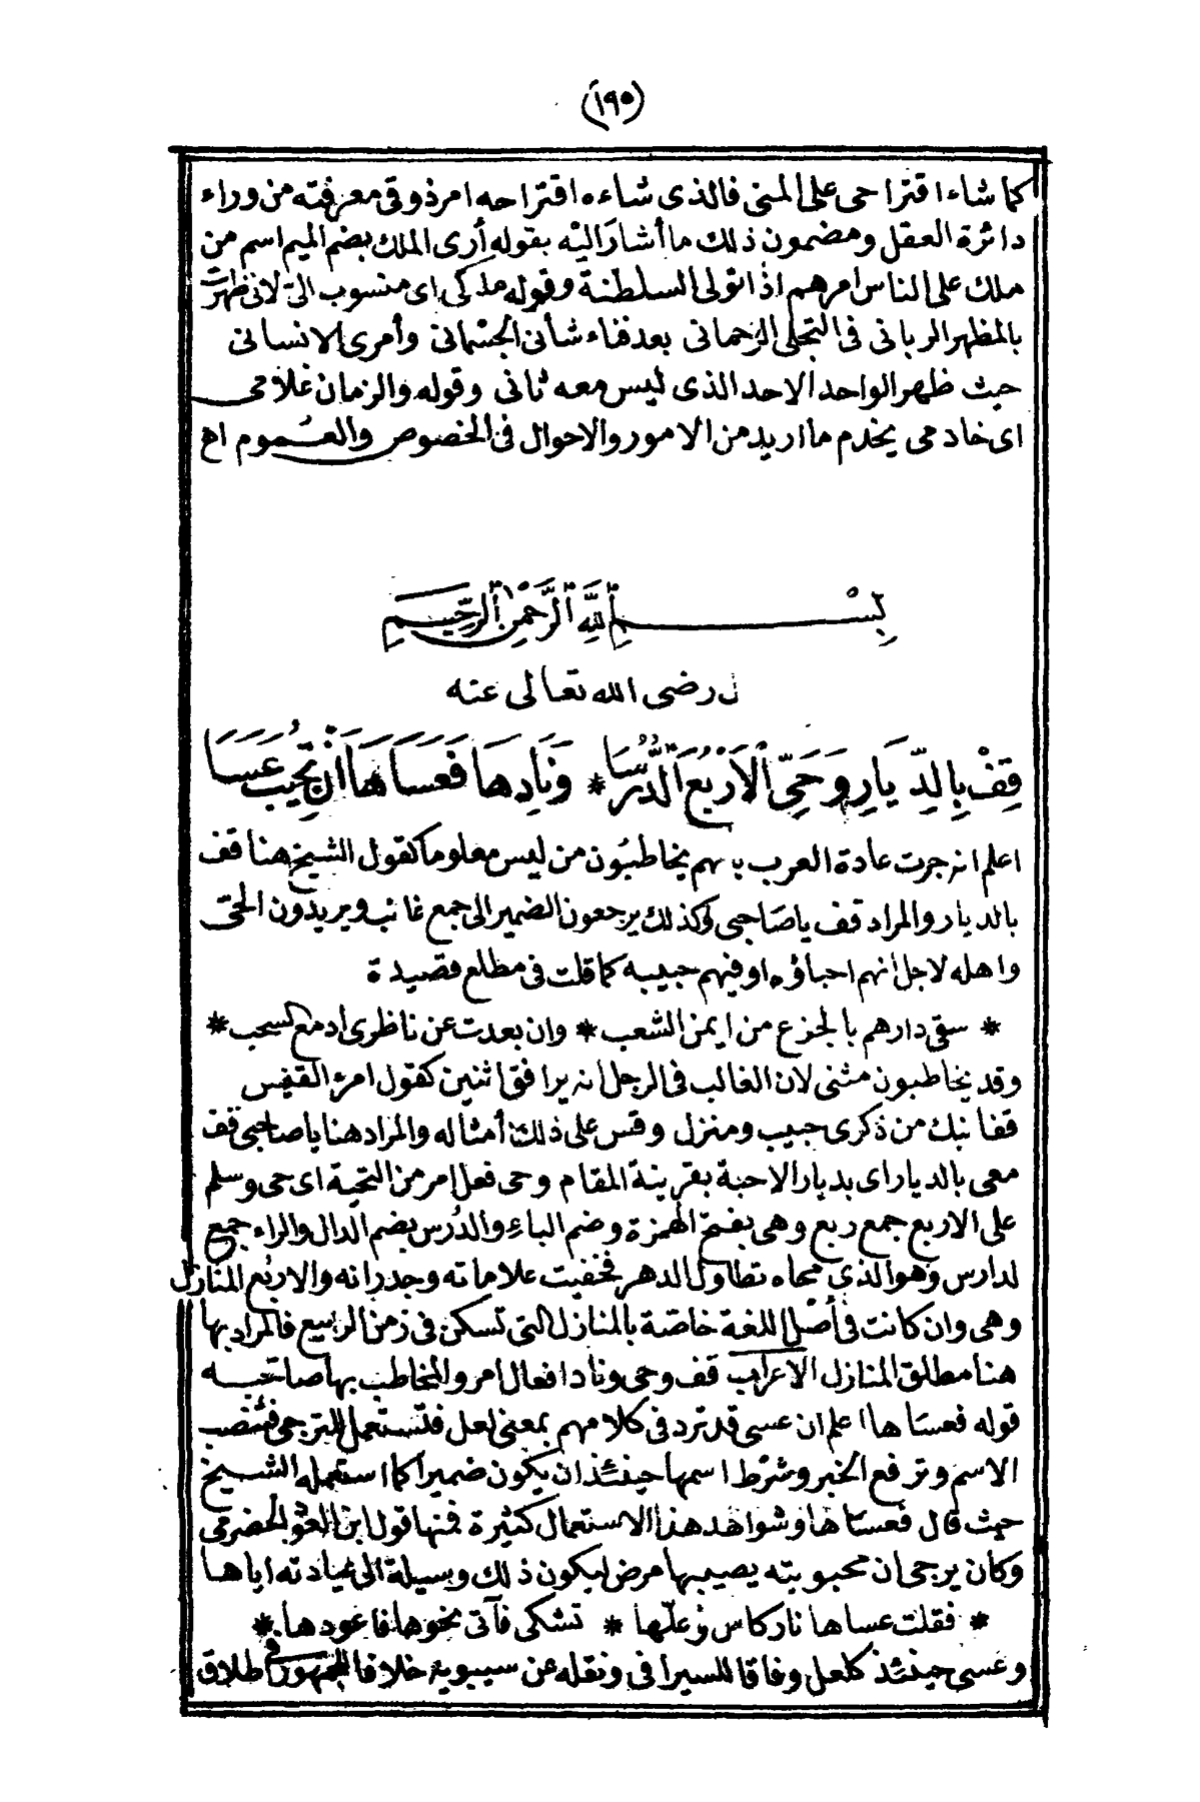 (١٩٥)
كما شاء اقتراحى على المنى فالذى شاءه اقتراحه امر ذوقى معرفته من وراء
دائرة العقل ومضمون ذلك ما أشار اليه بقوله أرى الملك بضم الميم اسم من
ملك على الناس امرهم اذا تولى السلطنة وقوله ملكى اى منسوب الىّ لانى ظهرت
بالمظهر الربانى فى التجلى الرحمانى بعد فناء شأنى الجسمانى وأمرى الانسانى
حيث ظهر الواحد الاحد الذى ليس معه ثانى وقوله والزمان غلامى
اى خادمى يخدم ما اريد من الامور والاحوال فى الخصوص والعموم اھ
بِسْمِ اللهِ الرَّحْمٰنِ الرَّحِيمِ
ل رضى الله تعالى عنه
قِفْ بِالدِّيَارِ وَحَيِّ الْاَرْبُعَ الدُّرُسَا * وَنَادِهَا فَعَسَاهَا اَنْ تُجِيبَ عَسَا
اعلم انه جرت عادة العرب بانهم يخاطبون من ليس معلوما كقول الشيخ هنا قف
بالديار والمراد قف يا صاحبى وكذلك يرجعون الضمير الى جمع غائب ويريدون الحى
واهله لاجل انهم احباؤه او فيهم حبيبه كما قلت فى مطلع قصيدة
* سقى دارهم بالجزع من ايمن الشعب * وان بعدت عن ناظرى ادمع السحب *
وقد يخاطبون مثنى لان الغالب فى الرجل انه يرافق اثنين كقول امرئ القيس
قفا نبك من ذكرى حبيب ومنزل وقس على ذلك أمثاله والمراد هنا يا صاحبى قف
معى بالديار اى بديار الاحبة بقرينة المقام وحى فعل امر من التحية اى حى وسلم
على الاربع جمع ربع وهى بفتح الهمزة وضم الباء والدرس بضم الدال والراء جمع
لدارس وهو الذى محاه تطاول الدهر فخفيت علاماته وجدرانه والاربع المنازل
وهى وان كانت فى أصل اللغة خاصة بالمنازل التى تسكن فى زمن الربيع فالمراد بها
هنا مطلق المنازل الاعراب قف وحى وناد افعال امر والمخاطب بها صاحبه
قوله فعساها اعلم ان عسى قد ترد فى كلامهم بمعنى لعل فتستعمل للترجى فتنصب
الاسم وترفع الخبر وشرط اسمها حينئذ ان يكون ضميرا كما استعمله الشيخ
حيث قال فعساها وشواهد هذا الاستعمال كثيرة فمنها قول ابن العود الحضرمى
وكان يرجى ان محبوبته يصيبها مرض ليكون ذلك وسيلة الى عيادته اياها
* فقلت عساها نار كاس وعلّها * تشكى فآتى نحوها فاعودها *
وعسى حينئذ كلعل وفاقا للسيرافى ونقله عن سيبويه خلافا للجمهور فى طلاق